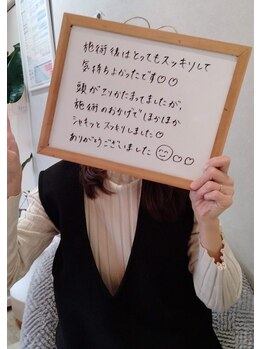 施術後はとってもスッキリして
気持ちよかったです♡♡
頭がカリかたまってましたが、
施術のおかげでほかほか
シャキッとスッキリしました♡
ありがとうございました☺♡♡